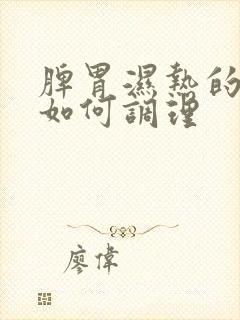 脾胃濕熱的
如何調理
廖偉